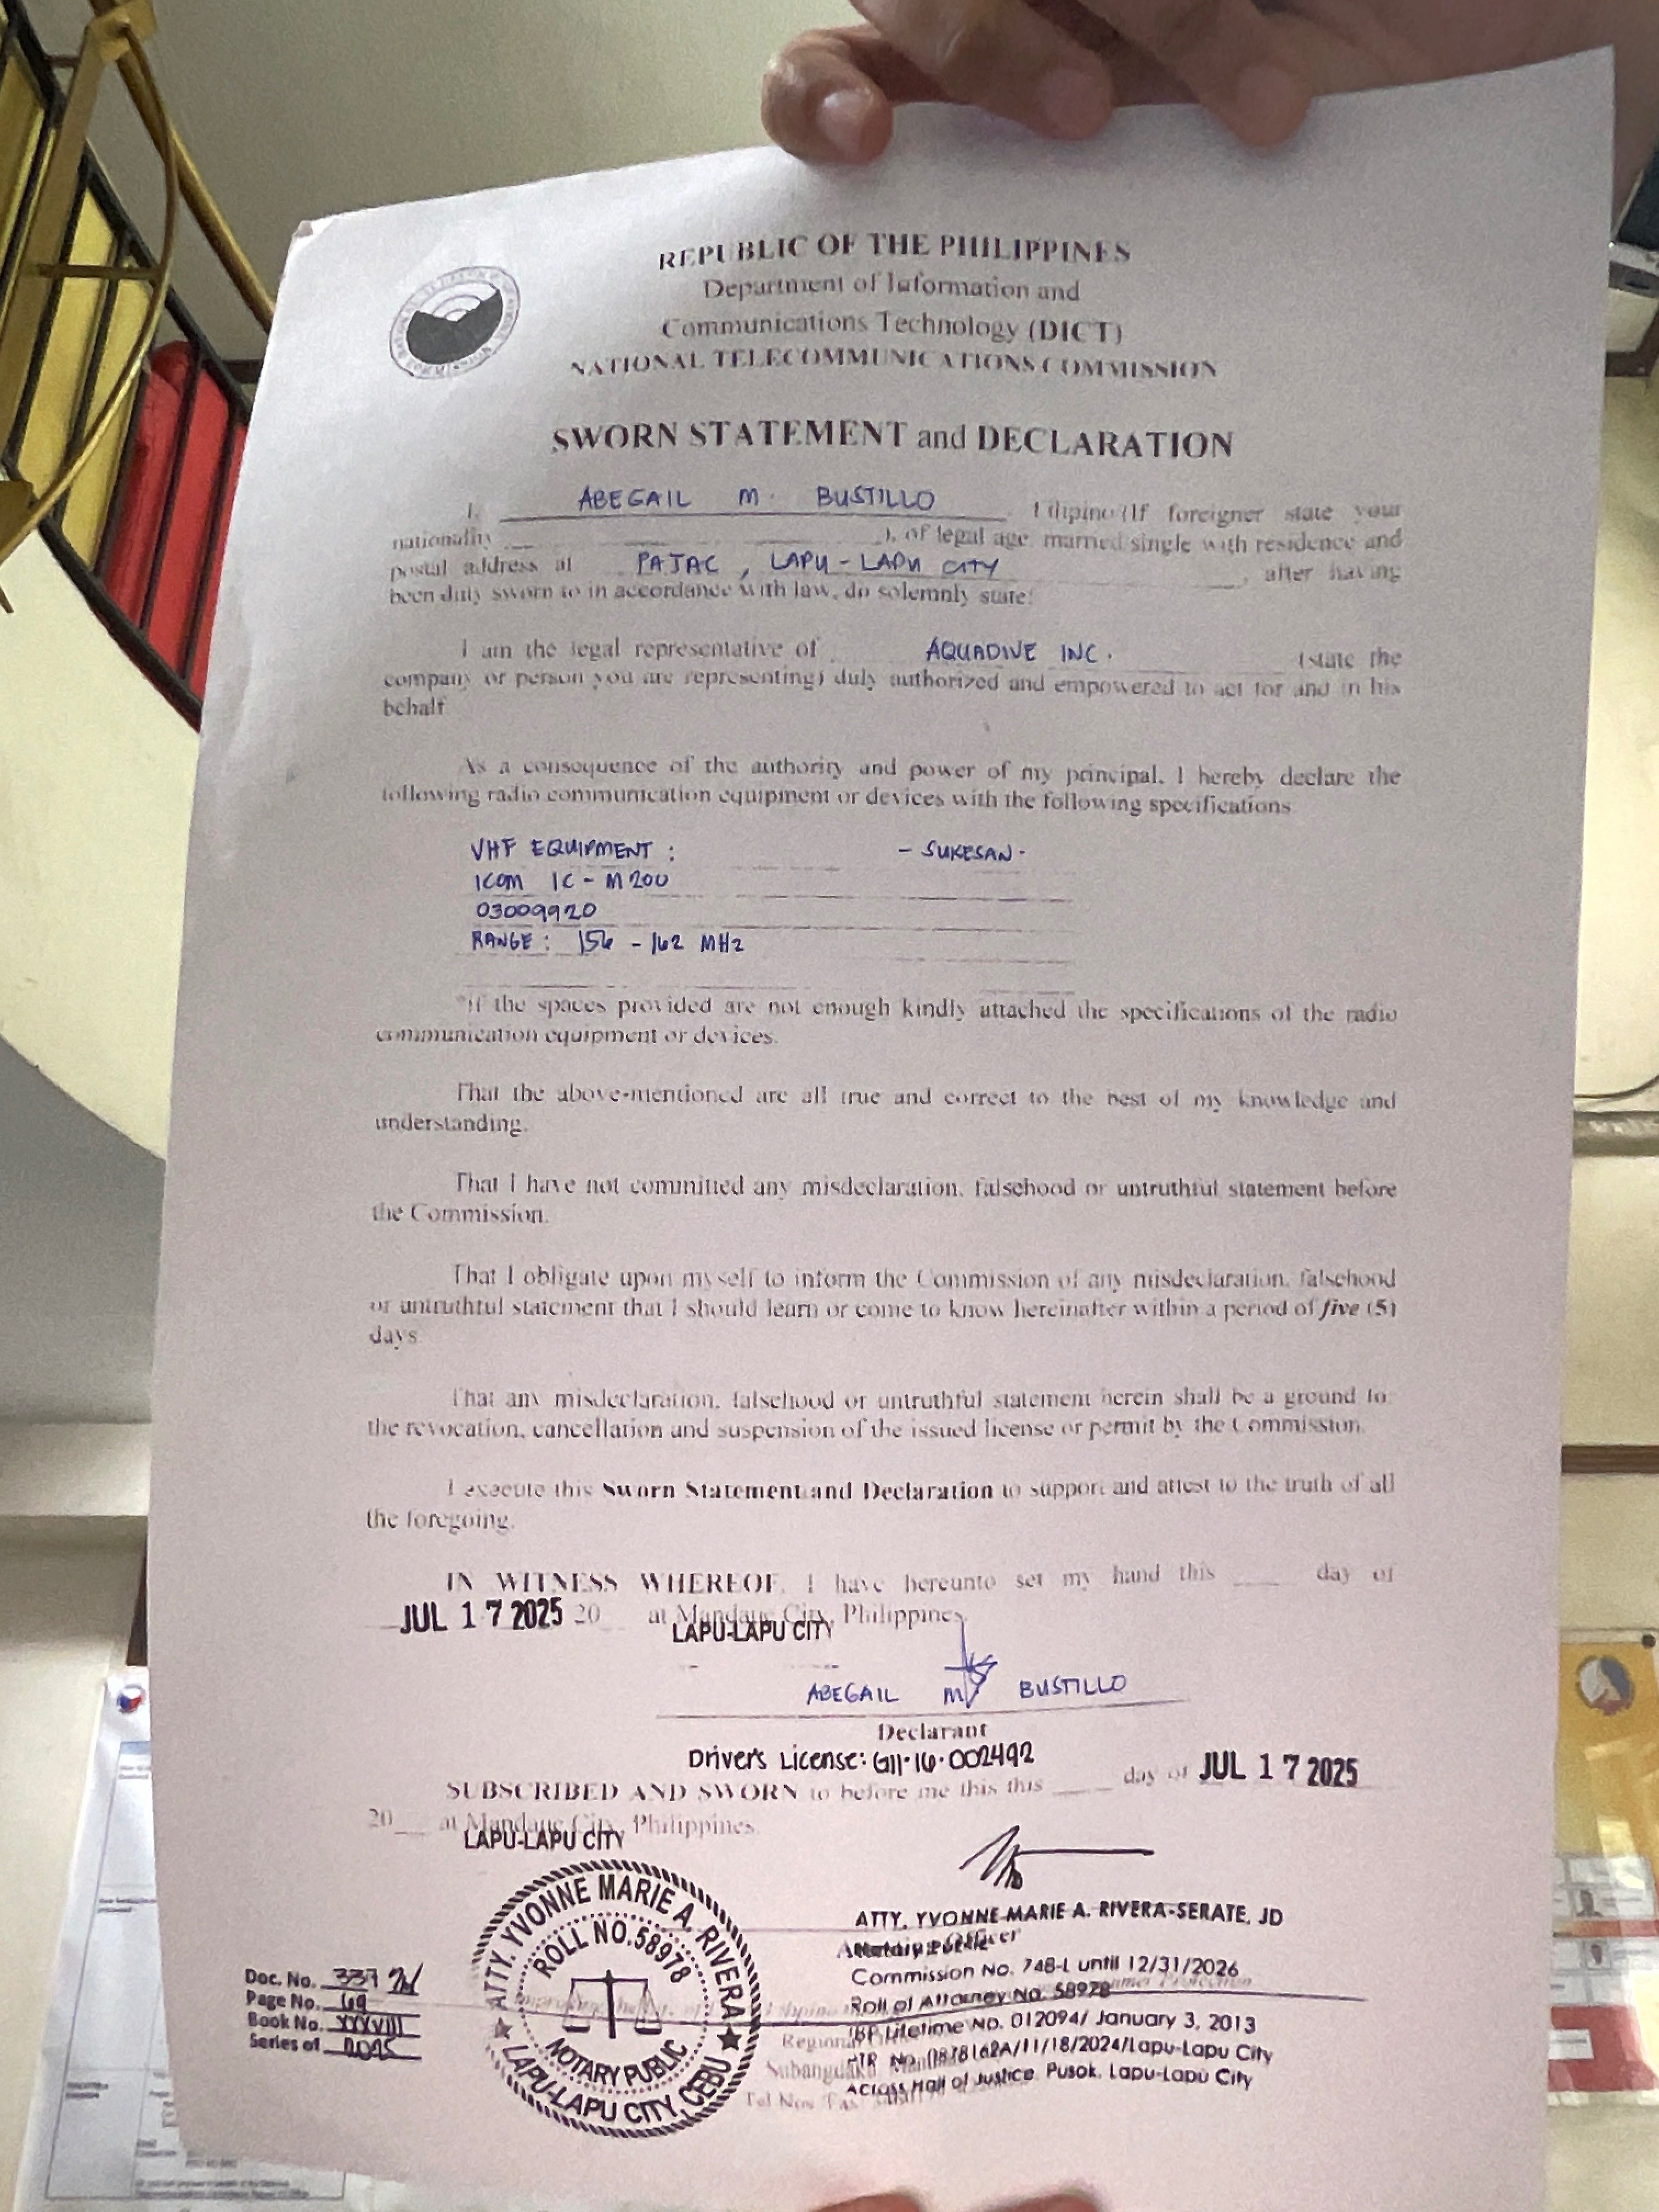 REPUBLIC OF THE PHILIPPINES
Department of Information and
Communications Technology (DICT)
NATIONAL TELECOMMUNICATIONS COMMISSION
SWORN STATEMENT and DECLARATION
I, ABEGAIL M. BUSTILLO, Filipino (If foreigner state your
nationality ), of legal age, married/single with residence and
postal address at PAJAC, LAPU-LAPU CITY, after having
been duly sworn to in accordance with law, do solemnly state:
I am the legal representative of AQUADIVE INC. (state the
company or person you are representing) duly authorized and empowered to act for and in his
behalf.
As a consequence of the authority and power of my principal, I hereby declare the
following radio communication equipment or devices with the following specifications
VHF EQUIPMENT : - SUKESAN -
ICOM IC - M200
03009920
RANGE : 156 - 162 MHz
*If the spaces provided are not enough kindly attached the specifications of the radio
communication equipment or devices.
That the above-mentioned are all true and correct to the best of my knowledge and
understanding.
That I have not committed any misdeclaration, falsehood or untruthful statement before
the Commission.
That I obligate upon myself to inform the Commission of any misdeclaration, falsehood
or untruthful statement that I should learn or come to know hereinafter within a period of five (5)
days.
That any misdeclaration, falsehood or untruthful statement herein shall be a ground fo
the revocation, cancellation and suspension of the issued license or permit by the Commission.
I execute this Sworn Statement and Declaration to support and attest to the truth of all
the foregoing.
IN WITNESS WHEREOF, I have hereunto set my hand this ____ day of
JUL 17 2025 20__ at Mandaue City, Philippines.
LAPU-LAPU CITY
ABEGAIL M. BUSTILLO
Declarant
Driver's License: G11-16-002492
SUBSCRIBED AND SWORN to before me this this ____ day of JUL 17 2025
20__ at Mandaue City, Philippines.
LAPU-LAPU CITY
ATTY. YVONNE MARIE A. RIVERA
ROLL NO. 58978
NOTARY PUBLIC
LAPU-LAPU CITY, CEBU
ATTY. YVONNE MARIE A. RIVERA-SERATE, JD
Notary Public
Commission No. 748-L until 12/31/2026
Roll of Attorney No. 58978
IBP Lifetime No. 012094/ January 3, 2013
PTR No. 0878162A/11/18/2024/Lapu-Lapu City
Across Hall of Justice, Pusok, Lapu-Lapu City
Doc. No. 337
Page No. 69
Book No. XXXVIII
Series of 2025